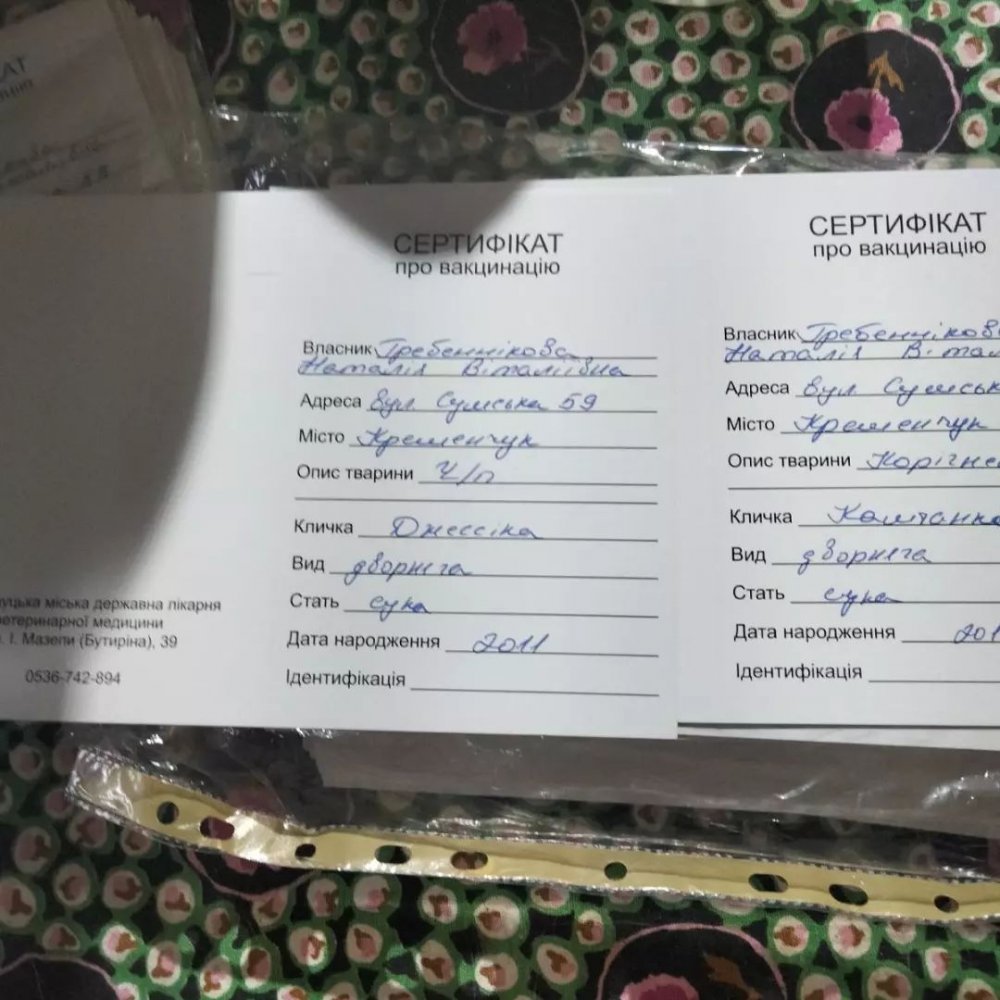 КАТ
СЕРТИФІКАТ
про вакцинацію
Власник Гребеннікова
Наталія Віталіївна
Адреса вул Сумська 59
Місто Кременчук
Опис тварини ч/п
Кличка Джессіка
Вид дворняга
Стать сука
Дата народження 2011
Ідентифікація
уцька міська державна лікарня
етеринарної медицини
. І. Мазепи (Бутиріна), 39
0536-742-894
СЕРТИФІКАТ
про вакцинацію
Власник Гребенніков
Наталія Вітал
Адреса вул Сумськ
Місто Кременчук
Опис тварини Корічне
Кличка Каштанка
Вид дворняга
Стать сука
Дата народження 201
Ідентифікація